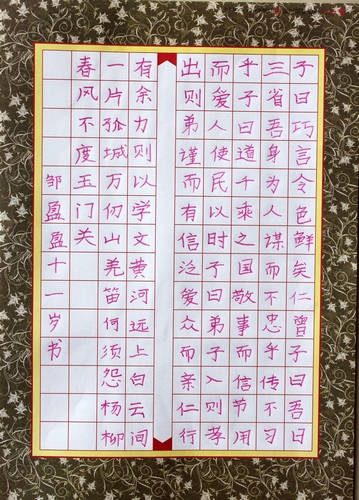 子曰巧言令色鲜矣仁曾子曰吾日
三省吾身为人谋而不忠乎传不习
乎子曰道千乘之国敬事而信节用
而爱人使民以时子曰弟子入则孝
出则弟谨而有信泛爱众而亲仁行
有余力则以学文黄河远上白云间
一片孤城万仞山羌笛何须怨杨柳
春风不度玉门关
邹盈盈十一岁书